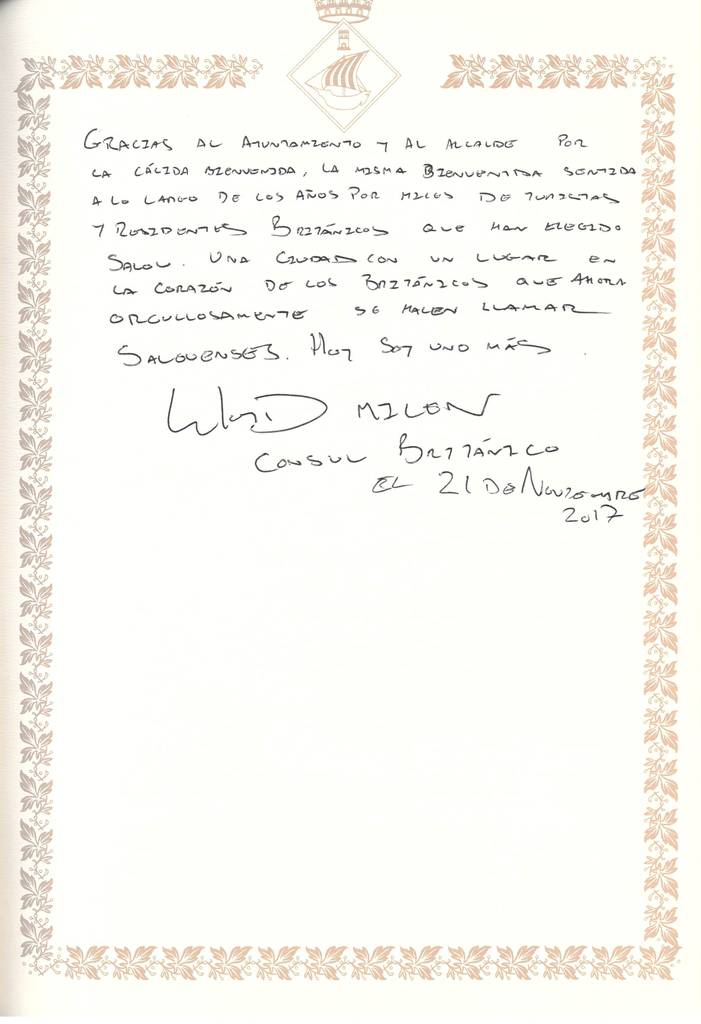 GRACIAS AL AYUNTAMIENTO Y AL ALCALDE POR
LA CÁLIDA BIENVENIDA, LA MISMA BIENVENIDA SENTIDA
A LO LARGO DE LOS AÑOS POR MILES DE TURISTAS
Y RESIDENTES BRITÁNICOS QUE HAN ELEGIDO
SALOU. UNA CIUDAD CON UN LUGAR EN
LA CORAZÓN DE LOS BRITÁNICOS QUE AHORA
ORGULLOSAMENTE SE HACEN LLAMAR
SALOUENSES. HOY SOY UNO MÁS.
LLOYD MILEN
CONSUL BRITÁNICO
EL 21 DE NOVIEMBRE
2017